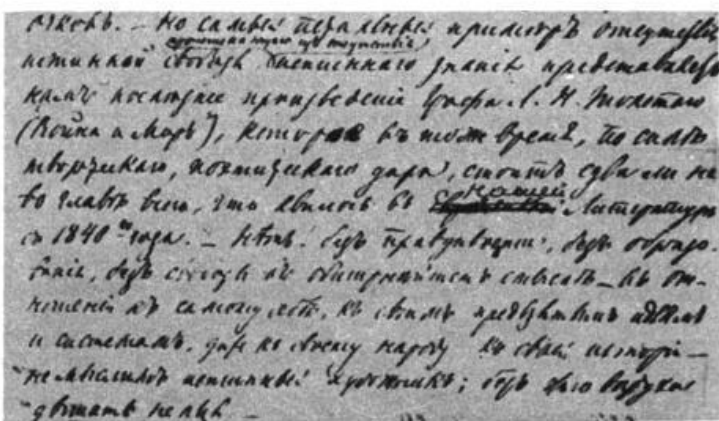 – Но самый печальный примѣръ отсутствія
проистекающаго изъ отсутствія
истинной свободы истиннаго знанія представляетъ
намъ послѣднее произведеніе Графа Л. Н. Толстаго
(Война и Миръ), которое въ тоже время, по силѣ
творческаго, поэтическаго дара, стоитъ едва ли не
во главѣ всего, что явилось въ нашей Литературѣ
съ 1840го года. – Нѣтъ! безъ правдивости, безъ образо-
ванія, безъ свободы въ обширнѣйшемъ смыслѣ – въ от-
ношеніи къ самому себѣ, къ своимъ предвзятымъ идеямъ
и системамъ, даже къ своему народу къ своей исторіи –
немыслимъ истинный художникъ; безъ этого воздуха
дышать нельзя –